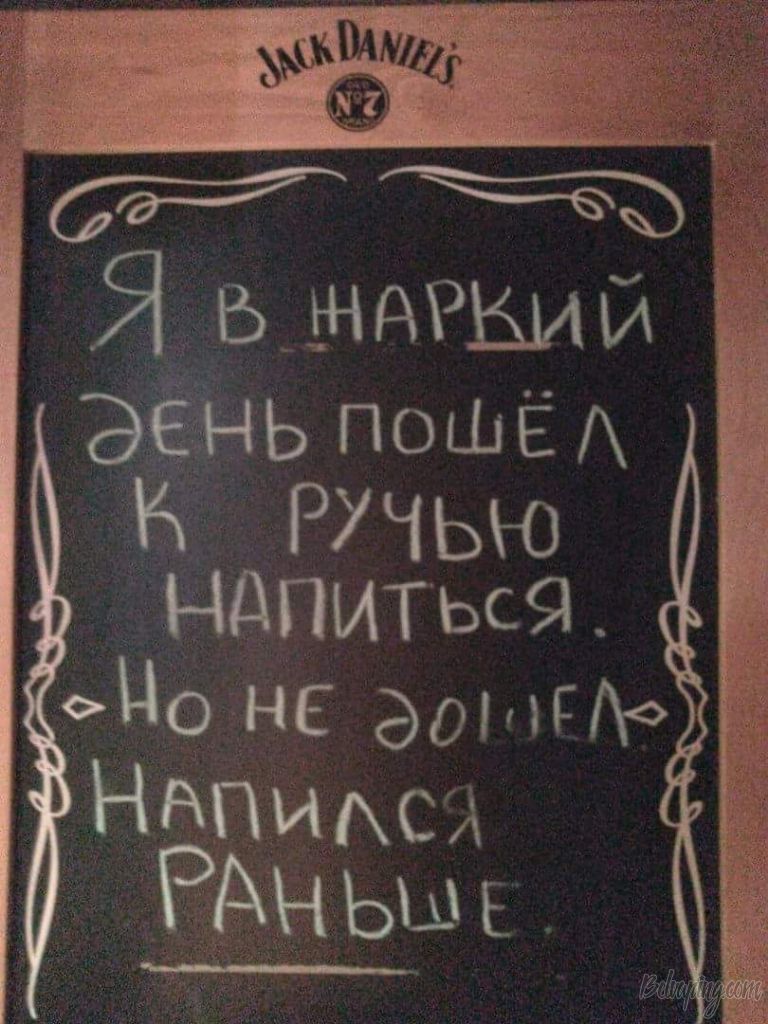 JACK DANIEL'S
OLD
No7
BRAND
Я в жаркий
день пошёл
к ручью
напиться.
Но не дошел.
Напился
раньше.